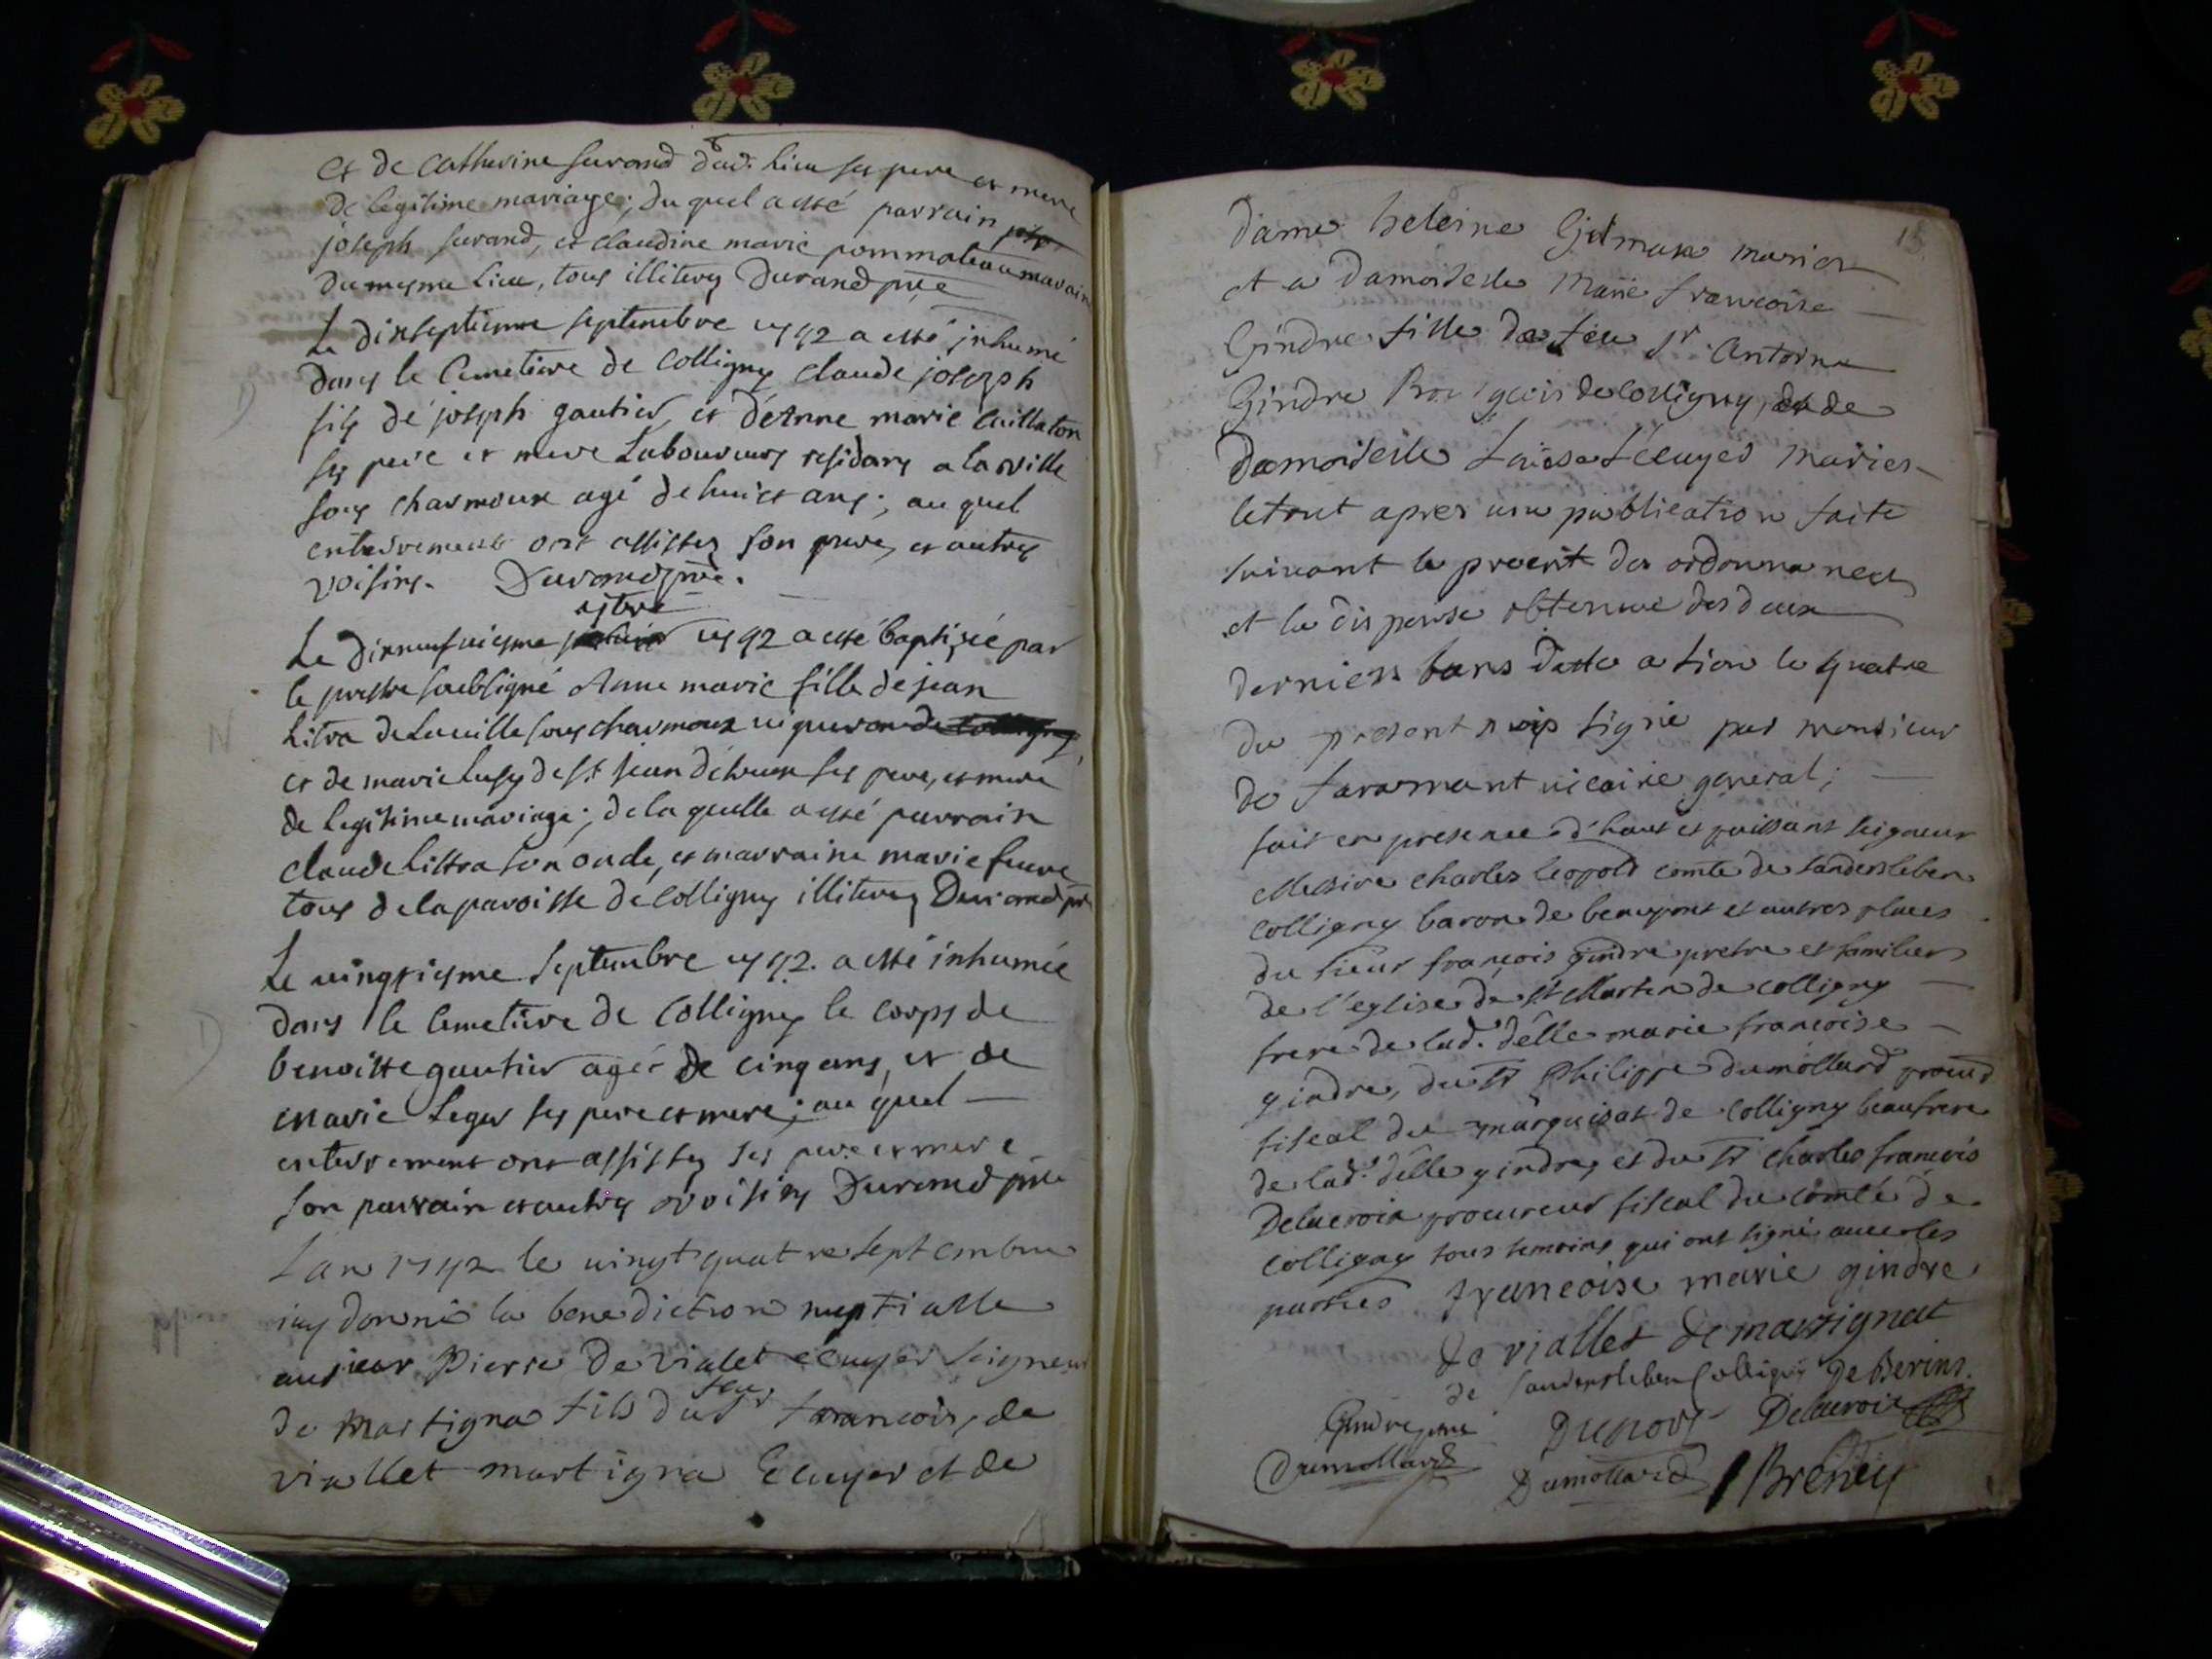 et de Catherine Surand dud. lieu ses pere et mere
de legitime mariage; du quel a esté parrain
joseph surand, et claudine marie pommateau maraine
du mesme lieu, tous illiterez Durand ptre
Le dixseptieme septembre 1742 a esté inhumé
dans le Cemetiere de Colligny claude joseph
fils de joseph gautier, et d'Anne marie Cuillaton
ses pere et mere Laboureurs residans a la ville
sous charmoux agé de huict ans; au quel
enterrement ont assistez son pere, et autres
voisins. Durand ptre.
Le dixneufuiesme 7bre 1742 a esté baptizée par
le prestre soubsigné Anne marie fille de jean
Litra de Lauille sous charmoux
et de marie Lugy de st jean d'étreux ses pere, et mere
de legitime mariage; de la quelle a esté parrain
claude Littra son oncle, et marraine marie feure
tous de la paroisse de Colligny illiterez Durand ptr
Le uingtiesme septembre 1742. a esté inhumée
dans le Cemetiere de Colligny le corps de
benoitte gautier agée de cinq ans, et de
marie Leger ses pere et mere; au quel
enterrement ont assistez ses pere et mere
son parrain et autres voisins Durand ptre
Lan 1742 le uingt quatre septembre
iay donné la benediction nuptialle
au sieur Pierre de vialet écuyer seigneur
de Martigna fils du feu sr francois, de
viallet martigna Ecuyer et de
15
dame heleine Gilman maries
et a damoiselle Marie francoise
Gindre fille de feu sr Antoine
Gindre Bourgeois de Colligny, et de
Damoiselle Louise Lécuyer maries
le tout apres une publication faite
suivant le precrit des ordonnances
et la dispense obtenue des deux
derniers bans datté a Lion le quatre
du present mois signé par monsieur
de Faramant uicaire general;
fait en presence d'haut et puissant seigneur
Messire charles leopold comte de sandersleben
colligny baron de beaupont et autres places
du sieur françois gindre pretre et familier
de l'eglise de st Martin de colligny
frere de lad. délle marie francoise
gindre, du sr Philippe dumollard procur
fiscal du marquisat de colligny beaufrere
de lad. délle gindre, et du sr charles francois
Delacroix procureur fiscal du comté de
colligny tous temoins qui ont signé auec les
parties francoise marie gindre
de viallet de martignat
de sandersleben Colligny de Berins.
Gindre ptre Dunort Delacroix
Dumollard Dumollard Breney